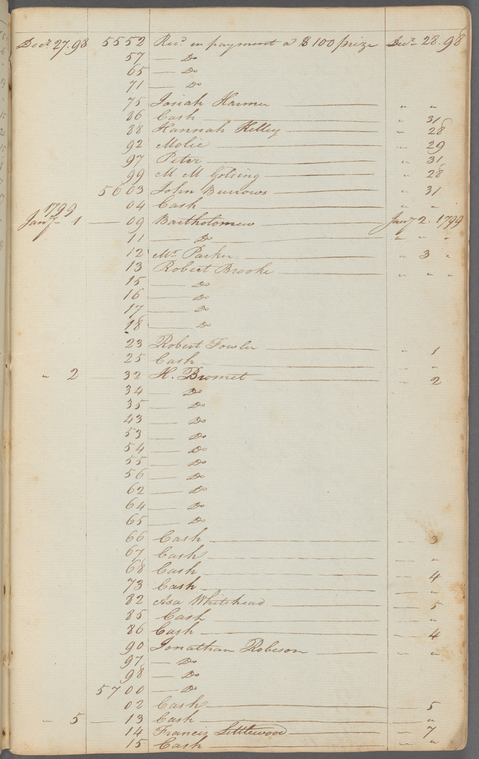 Decr 27.98 5552 Recd in payment a $100 prize Decr 28.98
57 — Do
65 — Do
71 — Do
75 Josiah Harmer " "
86 Cash " 31
88 Hannah Kelley " 28
92 Molie " 29
97 Peter " 31
99 M M Gosling " 28
5603 John Burrows " 31
04 Cash " "
1799
Jany 1 — 09 Bartholomew Jany 2. 1799
11 — Do " " "
12 Mr Parker " 3 "
13 Robert Brooke " " "
15 — Do
16 — Do
17 — Do
18 — Do
23 Robert Fowler " 1
25 Cash " "
" 2 32 H. Bromet " 2
34 — Do
35 — Do
43 — Do
53 — Do
54 — Do
55 — Do
56 — Do
62 — Do
64 — Do
65 — Do
66 Cash " 3
67 Cash " "
68 Cash " 4
73 Cash " "
82 Asa Whitehead " 5
85 Cash " "
86 Cash " 4
90 Jonathan Robeson " "
97 — Do
98 — Do
5700 — Do
02 Cash " 5
" 5 — 13 Cash " "
14 Francis Littlewood " 7
15 Cash " "